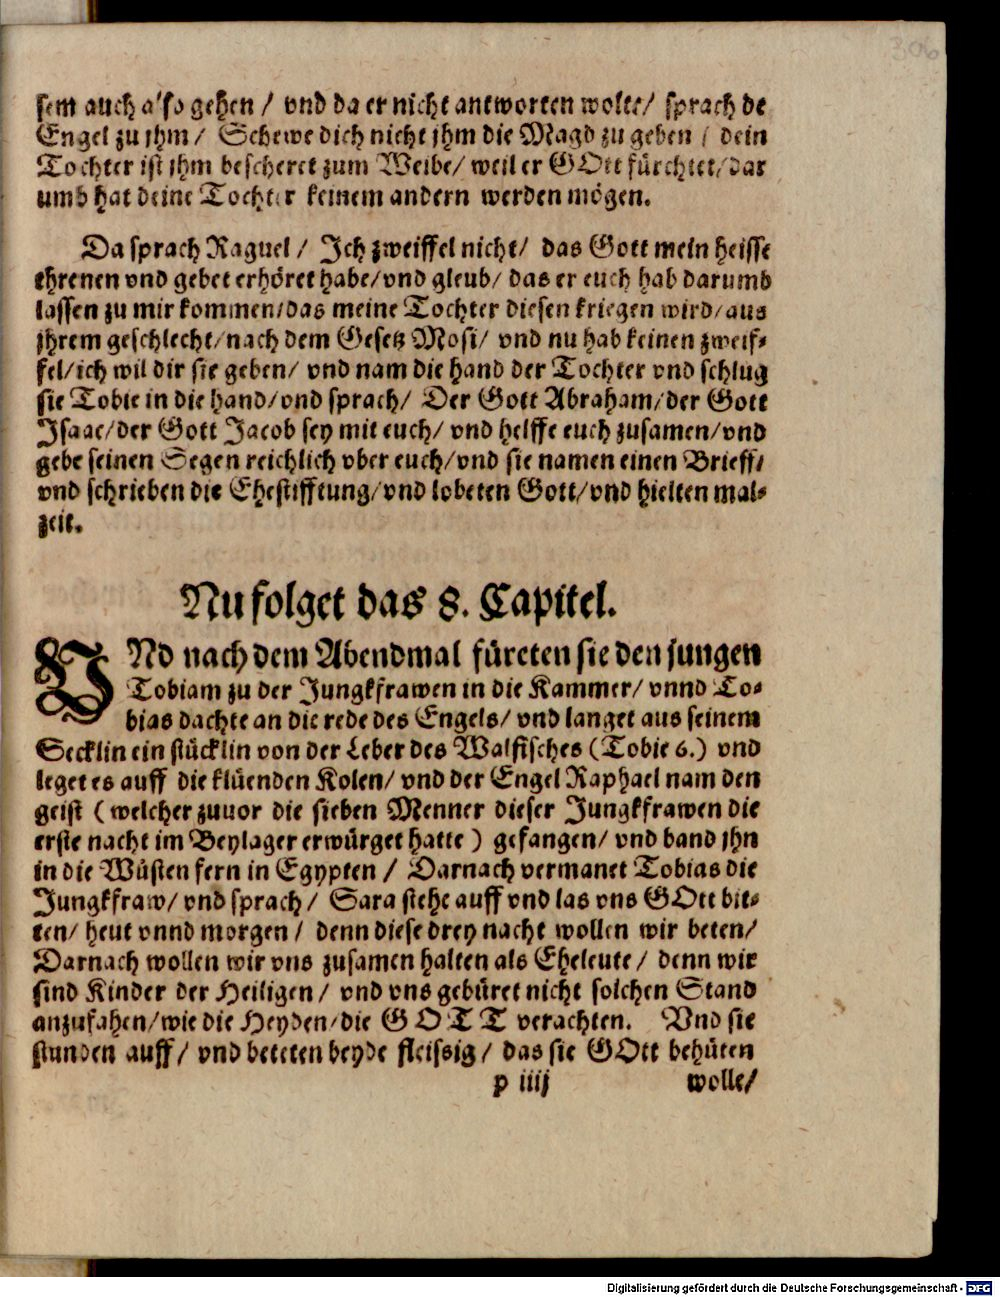 306
sem auch also gehen / vnd da er nicht antworten wolte/ sprach de
Engel zu jhm / Schewe dich nicht jhm die Magd zu geben / dein
Tochter ist jhm bescheret zum Weibe/ weil er GOtt fürchtet/dar
umb hat deine Tochter keinem andern werden mögen.
Da sprach Raguel / Ich zweiffel nicht/ das Gott mein heisse
threnen vnd gebet erhöret habe/vnd gleub/ das er euch hab darumb
lassen zu mir kommen/das meine Tochter diesen kriegen wird/aus
jhrem geschlecht/nach dem Gesetz Mosi/ vnd nu hab keinen zweif-
fel/ich wil dir sie geben/ vnd nam die hand der Tochter vnd schlug
sie Tobie in die hand/vnd sprach/ Der Gott Abraham/der Gott
Isaac/der Gott Jacob sey mit euch/ vnd helffe euch zusamen/vnd
gebe seinen Segen reichlich vber euch/vnd sie namen einen Brieff/
vnd schrieben die Ehestifftung/vnd lobeten Gott/vnd hielten mal-
zeit.
Nu folget das 8. Capitel.
VNd nach dem Abendmal füreten sie den jungen
Tobiam zu der Jungkfrawen in die Kammer/ vnnd To-
bias dachte an die rede des Engels/ vnd langet aus seinem
Secklin ein stücklin von der Leber des Walfisches (Tobie 6.) vnd
leget es auff die klüenden Kolen/ vnd der Engel Raphael nam den
geist (welcher zuuor die sieben Menner dieser Jungkfrawen die
erste nacht im Beylager erwürget hatte) gefangen/ vnd band jhn
in die Wüsten fern in Egypten / Darnach vermanet Tobias die
Jungkfraw/ vnd sprach / Sara stehe auff vnd las vns GOtt bit-
ten/ heut vnnd morgen / denn diese drey nacht wollen wir beten/
Darnach wollen wir vns zusamen halten als Eheleute / denn wir
sind Kinder der Heiligen / vnd vns gebüret nicht solchen Stand
anzufahen/wie die Heyden/die GOTT verachten. Vnd sie
stunden auff/ vnd beteten beyde fleissig / das sie GOtt behüten
p iiij wolle/
Digitalisierung gefördert durch die Deutsche Forschungsgemeinschaft - DFG